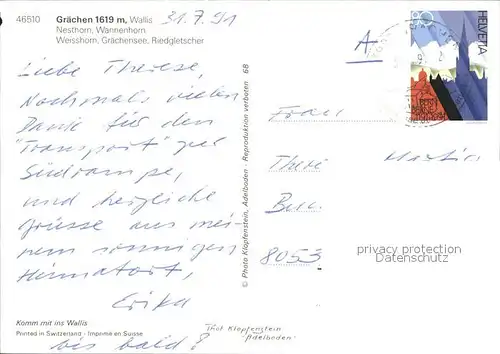 46510
Grächen 1619 m, Wallis
Nesthorn, Wannenhorn
Weisshorn, Grächensee, Riedgletscher
31.7.91
Liebe Therese,
Nochmals vielen
Dank für den
"Transport" zur
Südrampe,
und herzliche
Grüsse aus mei-
nem sonnigen
Heimatort,
Erika
Komm mit ins Wallis
Printed in Switzerland - Imprimé en Suisse
bis bald!
© Photo Klopfenstein, Adelboden Reproduktion verboten 68
Thöt Klopfenstein
Adelboden
A
80
HELVETIA
Frau
Martin
8053
privacy protection
Datenschutz